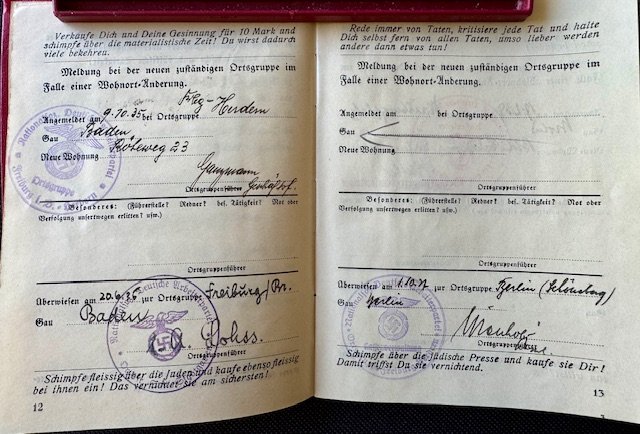 Verkaufe Dich und Deine Gesinnung für 10 Mark und
schimpfe über die materialistische Zeit! Du wirst dadurch
viele bekehren.
Meldung bei der neuen zuständigen Ortsgruppe im
Falle einer Wohnort-Änderung.
Frbg-Herdern
Angemeldet am 9.10.35 bei Ortsgruppe
Gau Baden
Neue Wohnung Röteweg 23
Ortsgruppenführer
Besonderes: (Führerstelle? Redner? bes. Tätigkeit? Not oder
Verfolgung unsertwegen erlitten? usw.)
Ortsgruppenführer
Überwiesen am 20.6.36 zur Ortsgruppe Freiburg/Br.
Gau Baden
Schimpfe fleissig über die Juden und kaufe ebenso fleissig
bei ihnen ein! Das vernichtet sie am sichersten!
12
Rede immer von Taten, kritisiere jede Tat und halte
Dich selbst fern von allen Taten, umso lieber werden
andere dann etwas tun!
Meldung bei der neuen zuständigen Ortsgruppe im
Falle einer Wohnort-Änderung.
Angemeldet am bei Ortsgruppe
Gau
Neue Wohnung
Ortsgruppenführer
Besonderes: (Führerstelle? Redner? bes. Tätigkeit? Not oder
Verfolgung unsertwegen erlitten? usw.)
Ortsgruppenführer
Überwiesen am 1.10.37 zur Ortsgruppe Berlin (Schöneberg)
Gau Berlin
Ortsgruppenführer
Schimpfe über die jüdische Presse und kaufe sie Dir!
Damit triffst Du sie vernichtend.
13